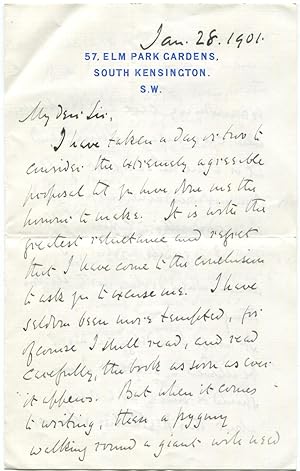 Jan. 28. 1901.
57, ELM PARK GARDENS,
SOUTH KENSINGTON.
S.W.
My dear Sir,
I have taken a day or two to
consider the extremely agreeable
proposal tht you have done me the
honour to make. It is with the
greatest reluctance and regret
that I have come to the conclusion
to ask you to excuse me. I have
seldom been more tempted, for
of course I shall read, and read
carefully, the book as soon as ever
it appears. But when it comes
to writing, then a pygmy
walking round a giant with